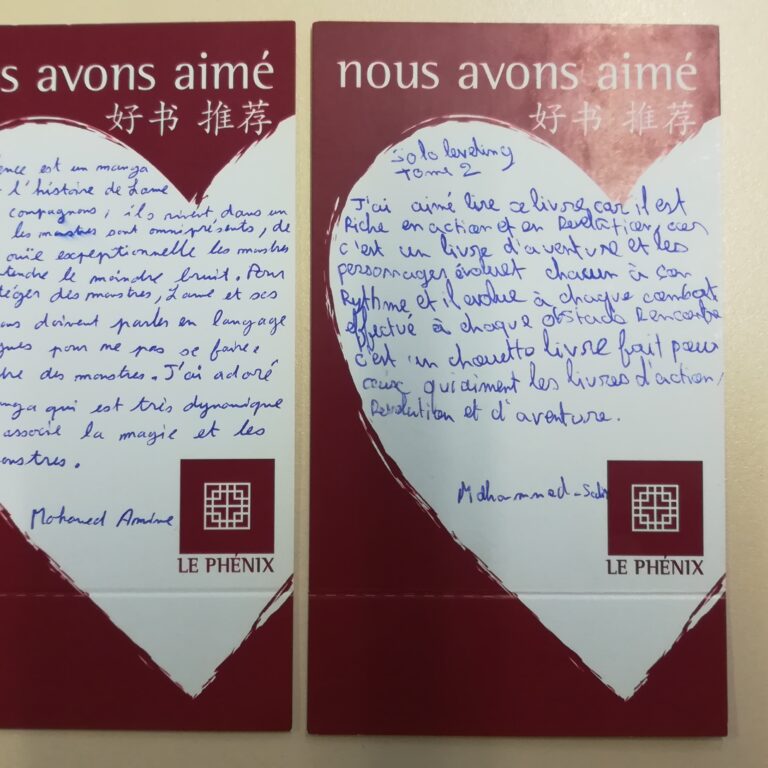 s avons aimé
好书 推荐
ence est un manga
l'histoire de Lame
compagnons, ils vivent dans un
les monstres sont omniprésents, de
ouïe exeptionnelle les monstres
tendre le moindre bruit. Pour
téger des monstres, Lame et ses
ons doivent parler en langage
gnes pour ne pas se faire
dre des monstres. J'ai adoré
anga qui est très dynamique
associe la magie et les
onstres.
Mohamed Amine
LE PHÉNIX
nous avons aimé
好书 推荐
Solo leveling
Tome 2
J'ai aimé lire ce livre car il est
Riche en action et en Revolution, car
c'est un livre d'aventure et les
personnages évoluet chacun à son
Rythme et il evolue à chaque combat
effectué à chaque obstacle Rencontre
c'est un chouette livre fait pour
ceux qui aiment les livres d'action,
Revolution et d'aventure.
LE PHÉNIX